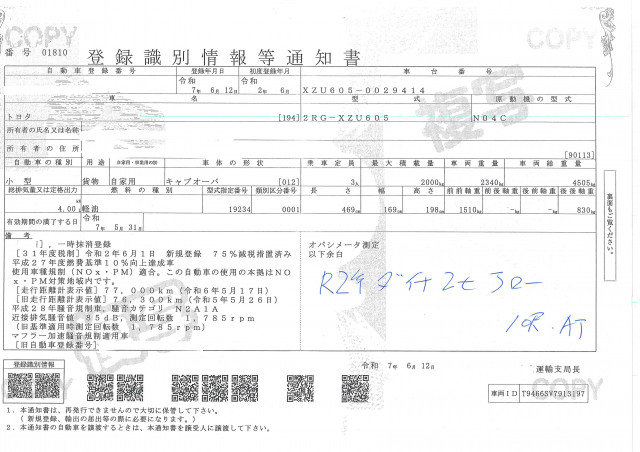 COPY
COPY
番号 01810
登録識別情報等通知書
自動車登録番号 登録年月日 初度登録年月 車台番号
令和 7年 6月 12日 令和 2年 6月 XZU605-0029414
車名 型式 原動機の型式
トヨタ [194] 2RG-XZU605 N04C
所有者の氏名又は名称
所有者の住所
[90113]
自動車の種別 用途 自家用・事業用の別 車体の形状 乗車定員 最大積載量 車両重量 車両総重量
小型 貨物 自家用 キャブオーバ [012] 3人 2000kg 2340kg 4505kg
総排気量又は定格出力 燃料の種類 型式指定番号 類別区分番号 長さ 幅 高さ 前前軸重 前後軸重 後前軸重 後後軸重
4.00 軽油 19234 0001 469cm 169cm 198cm 1510kg -kg -kg 830kg
有効期間の満了する日 令和 7年 5月 31日
備考
], 一時抹消登録
[31年度税制] 令和2年6月1日 新規登録 75%減税措置済み
平成27年度燃費基準10%向上達成車
使用車種規制(NOx・PM)適合。この自動車の使用の本拠はNO
x・PM対策地域内です。
[走行距離計表示値] 77,000km(令和6年5月17日)
[旧走行距離計表示値] 76,300km(令和5年5月26日)
平成28年騒音規制車, 騒音カテゴリ N2A1A
近接排気騒音値 85dB, 測定回転数 1,785rpm
(旧基準適用時測定回転数 1,785rpm)
マフラー加速騒音規制適用車
[旧自動車登録番号]
オパシメータ測定
以下余白
AT
複写
裏面もご覧ください。
令和 7年 6月 12日
運輸支局長
登録識別情報
車両ID T9466SV7913197
COPY
COPY
1. 本通知書は、再発行できませんので大切に保管して下さい。
(新規登録、輸出の届出等の際に必要になります。)
2. 本通知書の自動車を譲渡するときは、本通知書を譲受人に譲渡して下さい。